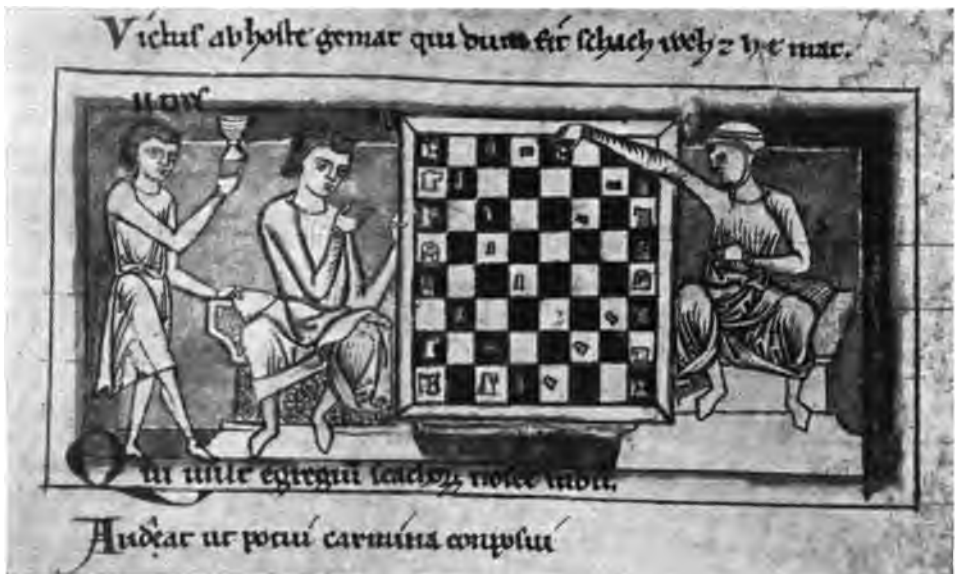 Victus ab hoste gemat qui dum fit schach weh z
Qui uult egregiū scachoꝝ nosce ludū.
Audeat ut potui carmina conposui